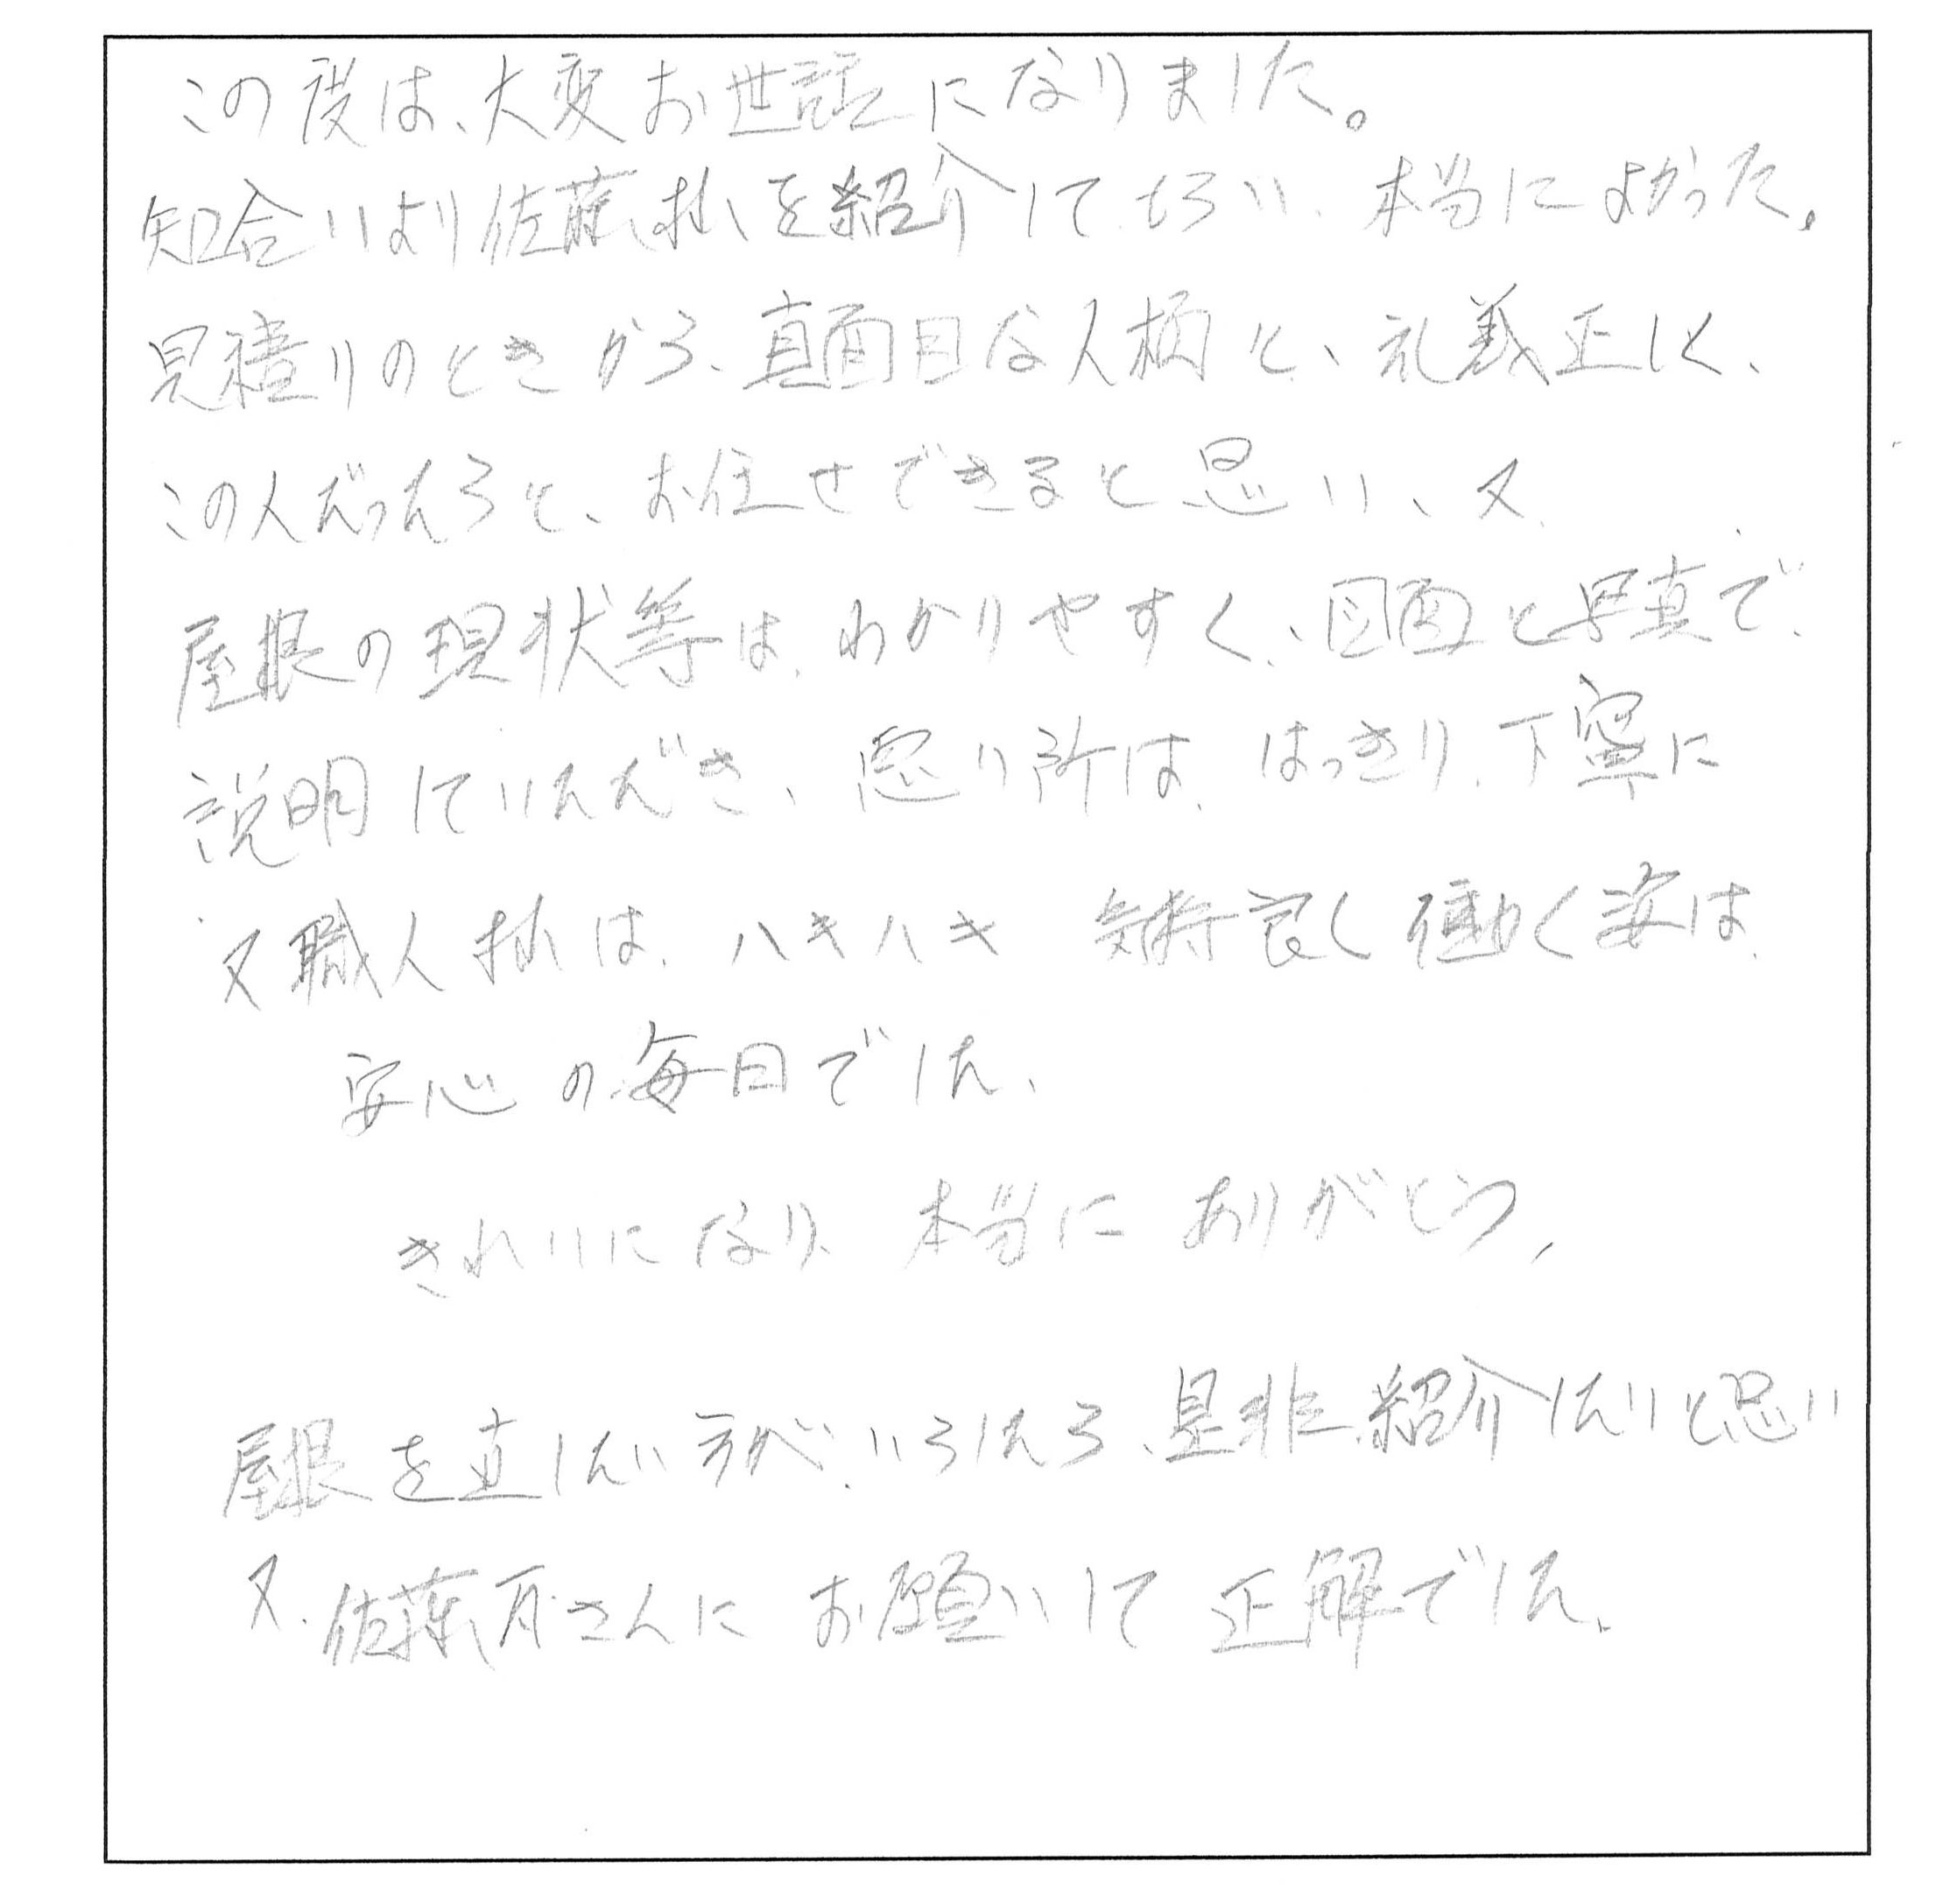 この度は、大変お世話になりました。
知合いより佐藤様を紹介してもらい、本当によかった。
見積りのときから、真面目な人柄と、礼義正しく、
この人だったらと、お任せできると思い、又
屋根の現状等は、わかりやすく、図面と写真で、
説明していただき、悪い所は、はっきり、丁寧に
又職人様は、ハキハキ 気持良く働く姿は、
安心の毎日でした、
きれいになり、本当にありがとう、
屋根を直したい方が、いらしたら、是非、紹介したいと思い
又、佐藤 さんにお願いして正解でした、